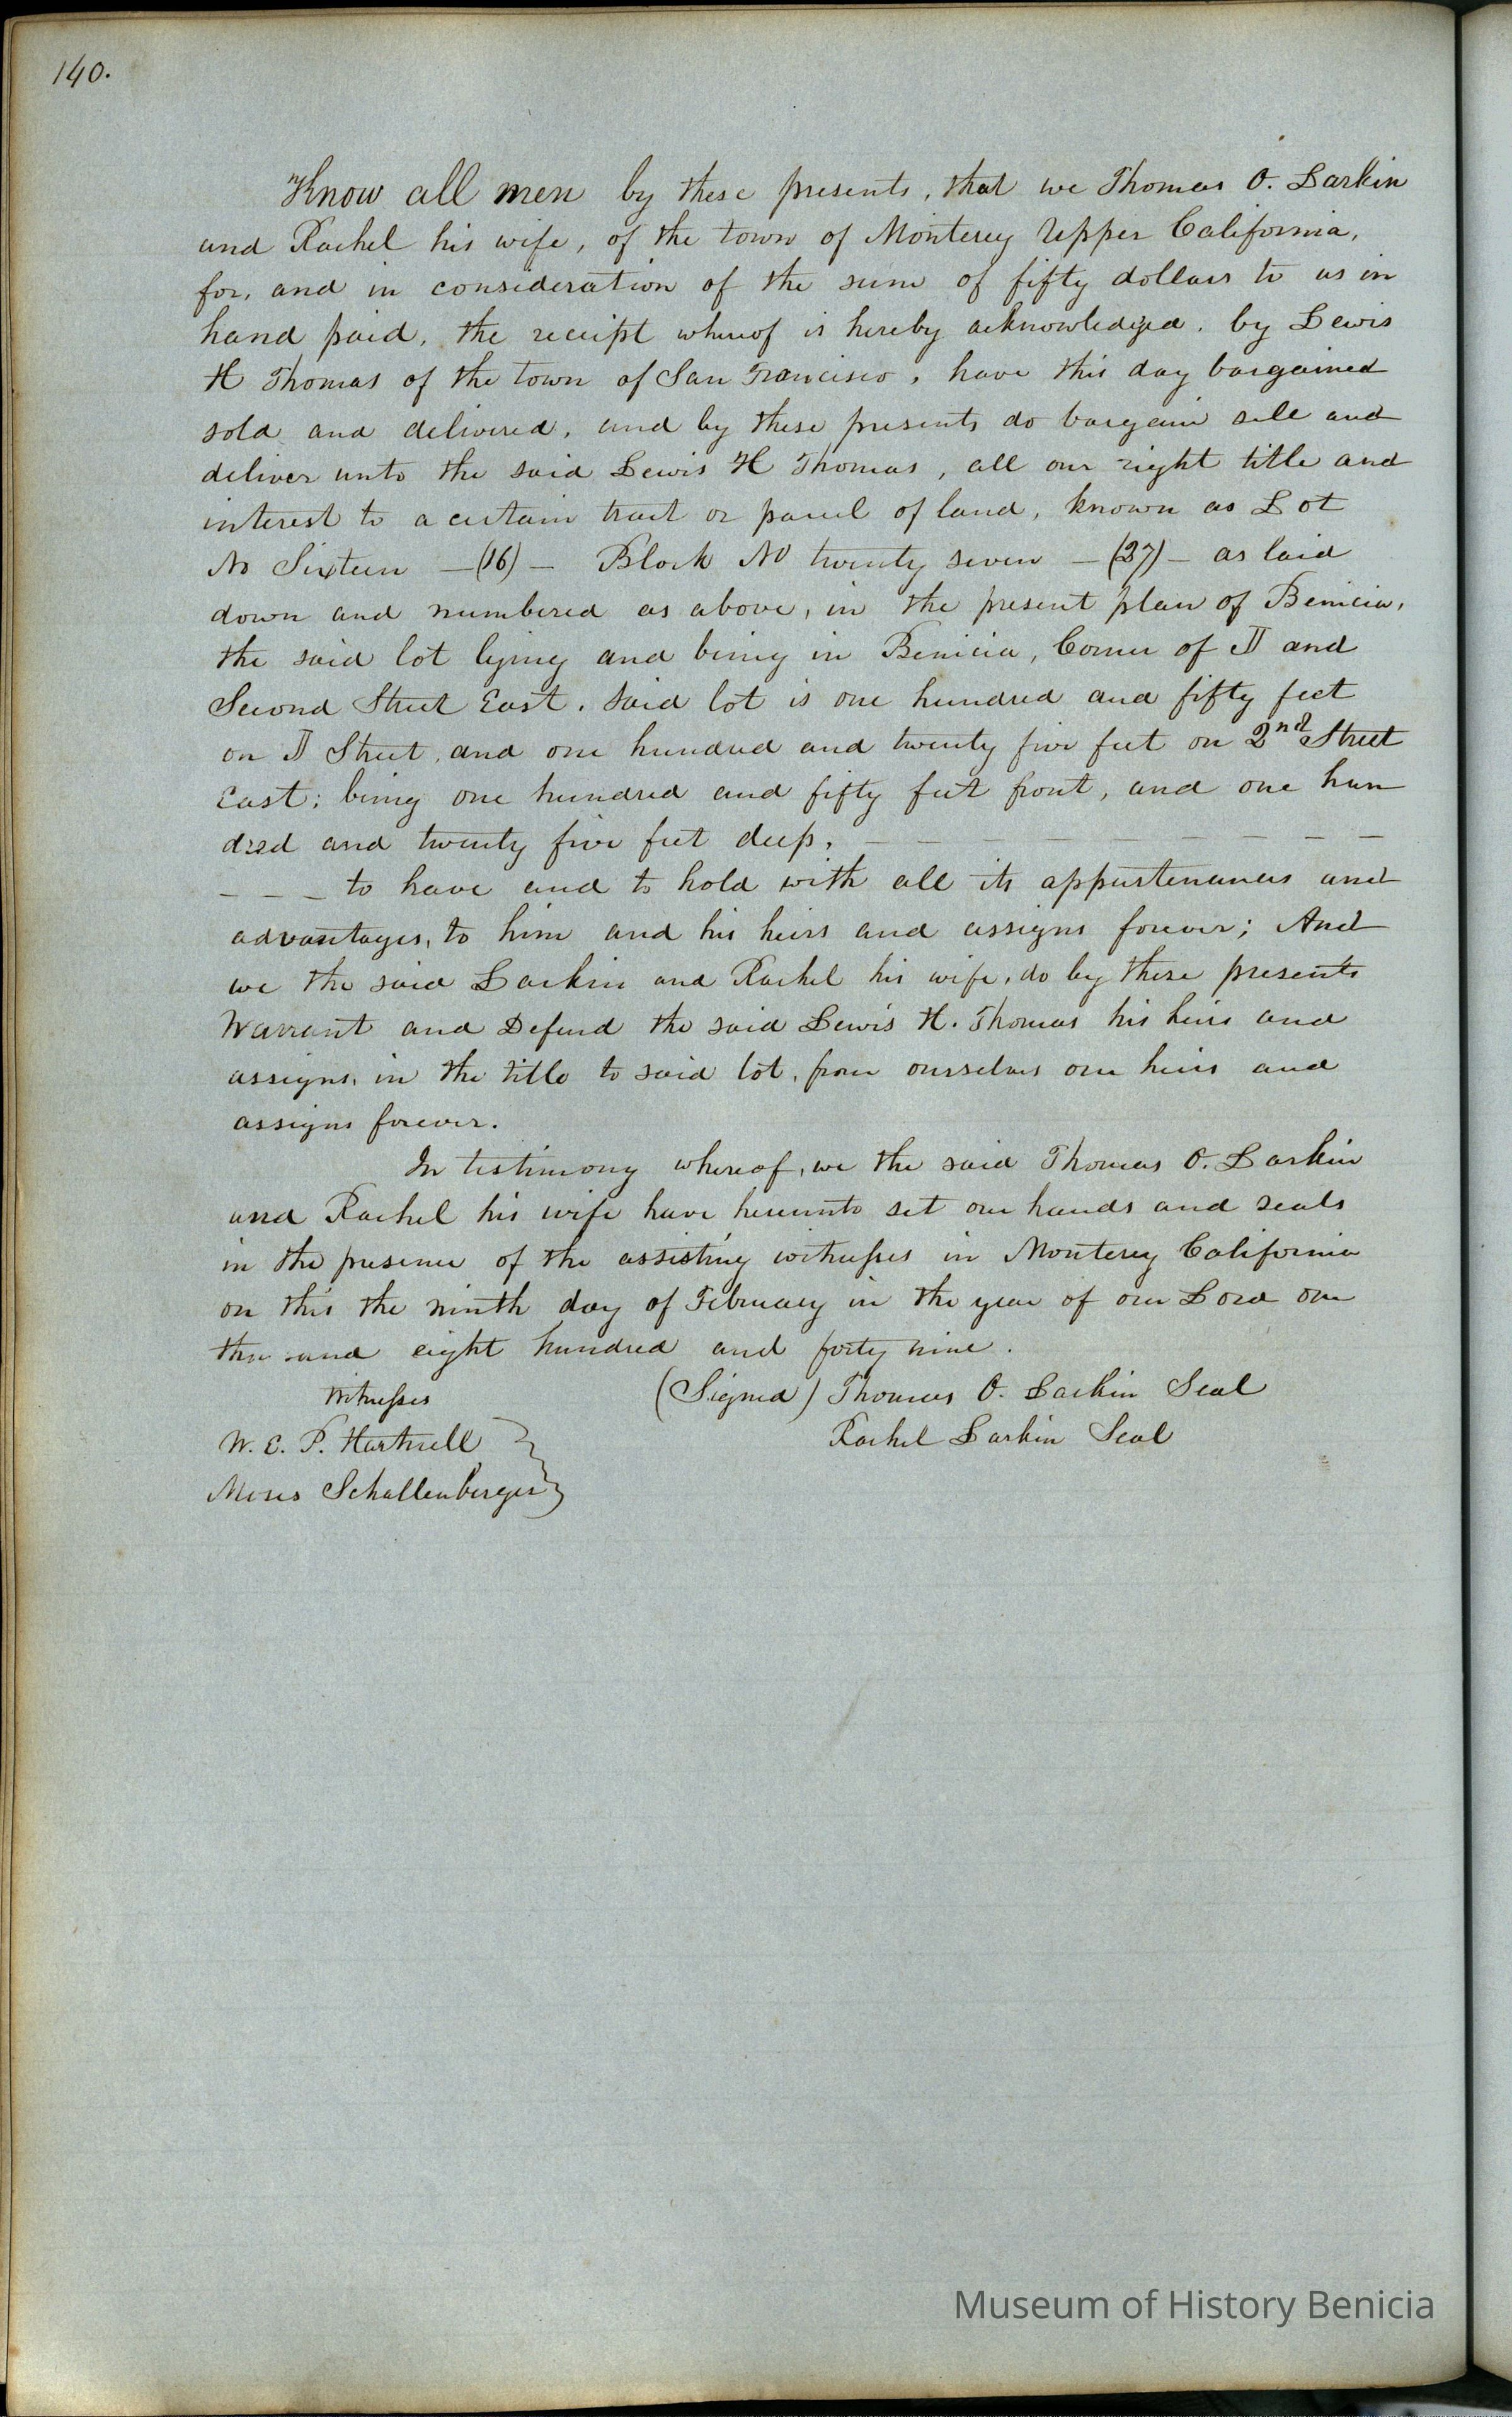 140.
Know all men by these presents, that we Thomas O. Larkin
and Rachel his wife, of the town of Monterey Upper California,
for, and in consideration of the sum of fifty dollars to us in
hand paid, the receipt whereof is hereby acknowledged, by Lewis
H Thomas of the town of San Francisco, have this day bargained
sold and delivered, and by these presents do bargain sell and
deliver unto the said Lewis H Thomas, all our right title and
interest to a certain tract or parcel of land, known as Lot
No Sixteen —(16)— Block No twenty seven —(27)— as laid
down and numbered as above, in the present plan of Benicia,
the said lot lying and being in Benicia, Corner of J and
Second Street East. Said lot is one hundred and fifty feet
on J Street, and one hundred and twenty five feet on 2nd Street
East; being one hundred and fifty feet front, and one hun
dred and twenty five feet deep. — — — — — — — — —
— — — to have and to hold with all its appurtenances and
advantages, to him and his heirs and assigns forever; And
we the said Larkin and Rachel his wife, do by these presents
Warrant and Defend the said Lewis H. Thomas his heirs and
assigns, in the title to said lot, from ourselves our heirs and
assigns forever.
In testimony whereof, we the said Thomas O. Larkin
and Rachel his wife have hereunto set our hands and seals
in the presence of the assisting witnesses in Monterey California
on this the ninth day of February in the year of our Lord one
thousand eight hundred and forty nine.
Witnesses (Signed) Thomas O. Larkin Seal
W. E. P. Hartnell Rachel Larkin Seal
Moses Schallenberger
Museum of History Benicia